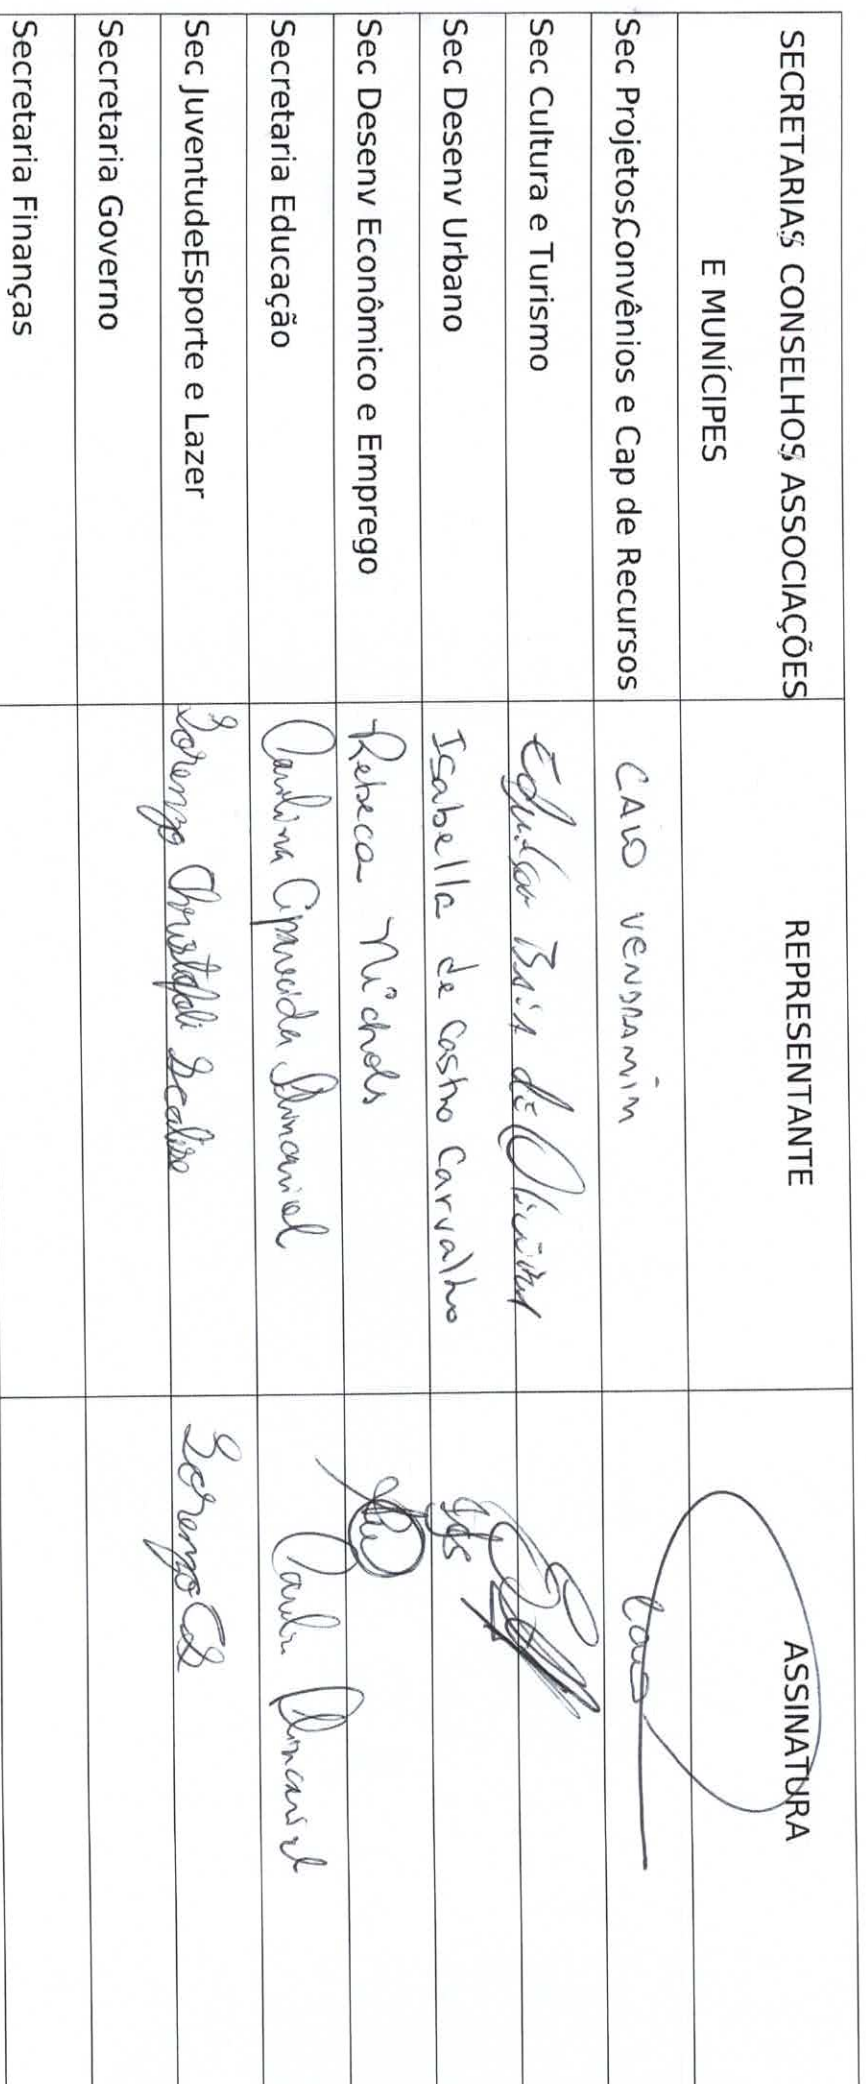 SECRETARIAS CONSELHOS ASSOCIAÇÕES E MUNÍCIPES REPRESENTANTE ASSINATURA
Sec Projetos,Convênios e Cap de Recursos CAIO VENDRAMIN Caio
Sec Cultura e Turismo de Oliveira
Sec Desenv Urbano Isabella de Castro Carvalho
Sec Desenv Econômico e Emprego Rebeca Nichols
Secretaria Educação Aparecida
Sec JuventudeEsporte e Lazer Lorenzo Christofoli Scalise Lorenzo
Secretaria Governo
Secretaria Finanças